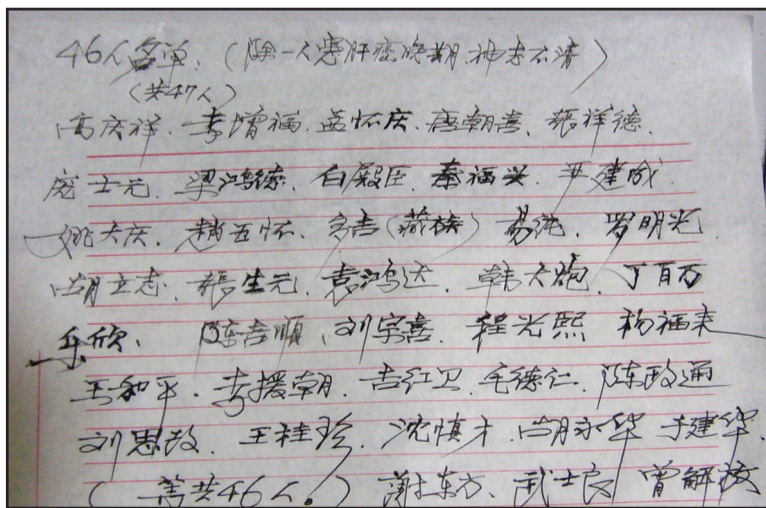 46人名单：（除一人患肝癌晚期，神志不清）
（共47人）
高庆祥．李增福．孟怀庆．唐朝喜、张祥德．
庞士元、梁鸿德．白殿臣、秦福兴．尹建成
姚大庆．赵五怀．多吉（藏族）易纯．罗明光
胡立志．张生元．袁鸿达．韩大炮．丁百万
乐欣、陈吉顺、刘宗喜．程光熙 杨福来
王和平．李援朝．吉红卫．毛德仁．陈政通
刘思故．王桂珍．沈慎才．胡永华 于建华．
（ 共46人。）谢东方、武士良 曾解放